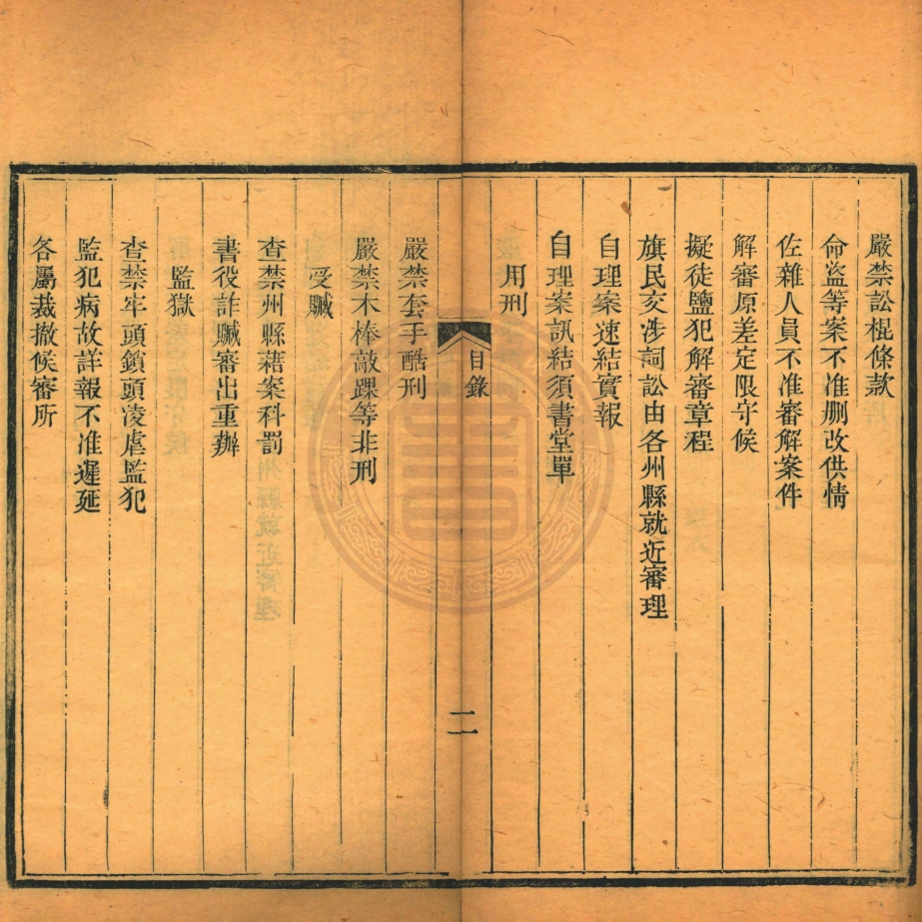 嚴禁訟棍條款
命盜等案不准刪改供情
佐雜人員不准審解案件
解審原差定限守候
擬徒鹽犯解審章程
旗民交涉詞訟由各州縣就近審理
自理案速結實報
自理案訊結須書堂單
用刑
目錄
二
嚴禁套手酷刑
嚴禁木棒敲踝等非刑
受贓
查禁州縣藉案科罰
書役詐贓審出重辦
監獄
查禁牢頭鎖頭凌虐監犯
監犯病故詳報不准遲延
各屬裁撤候審所